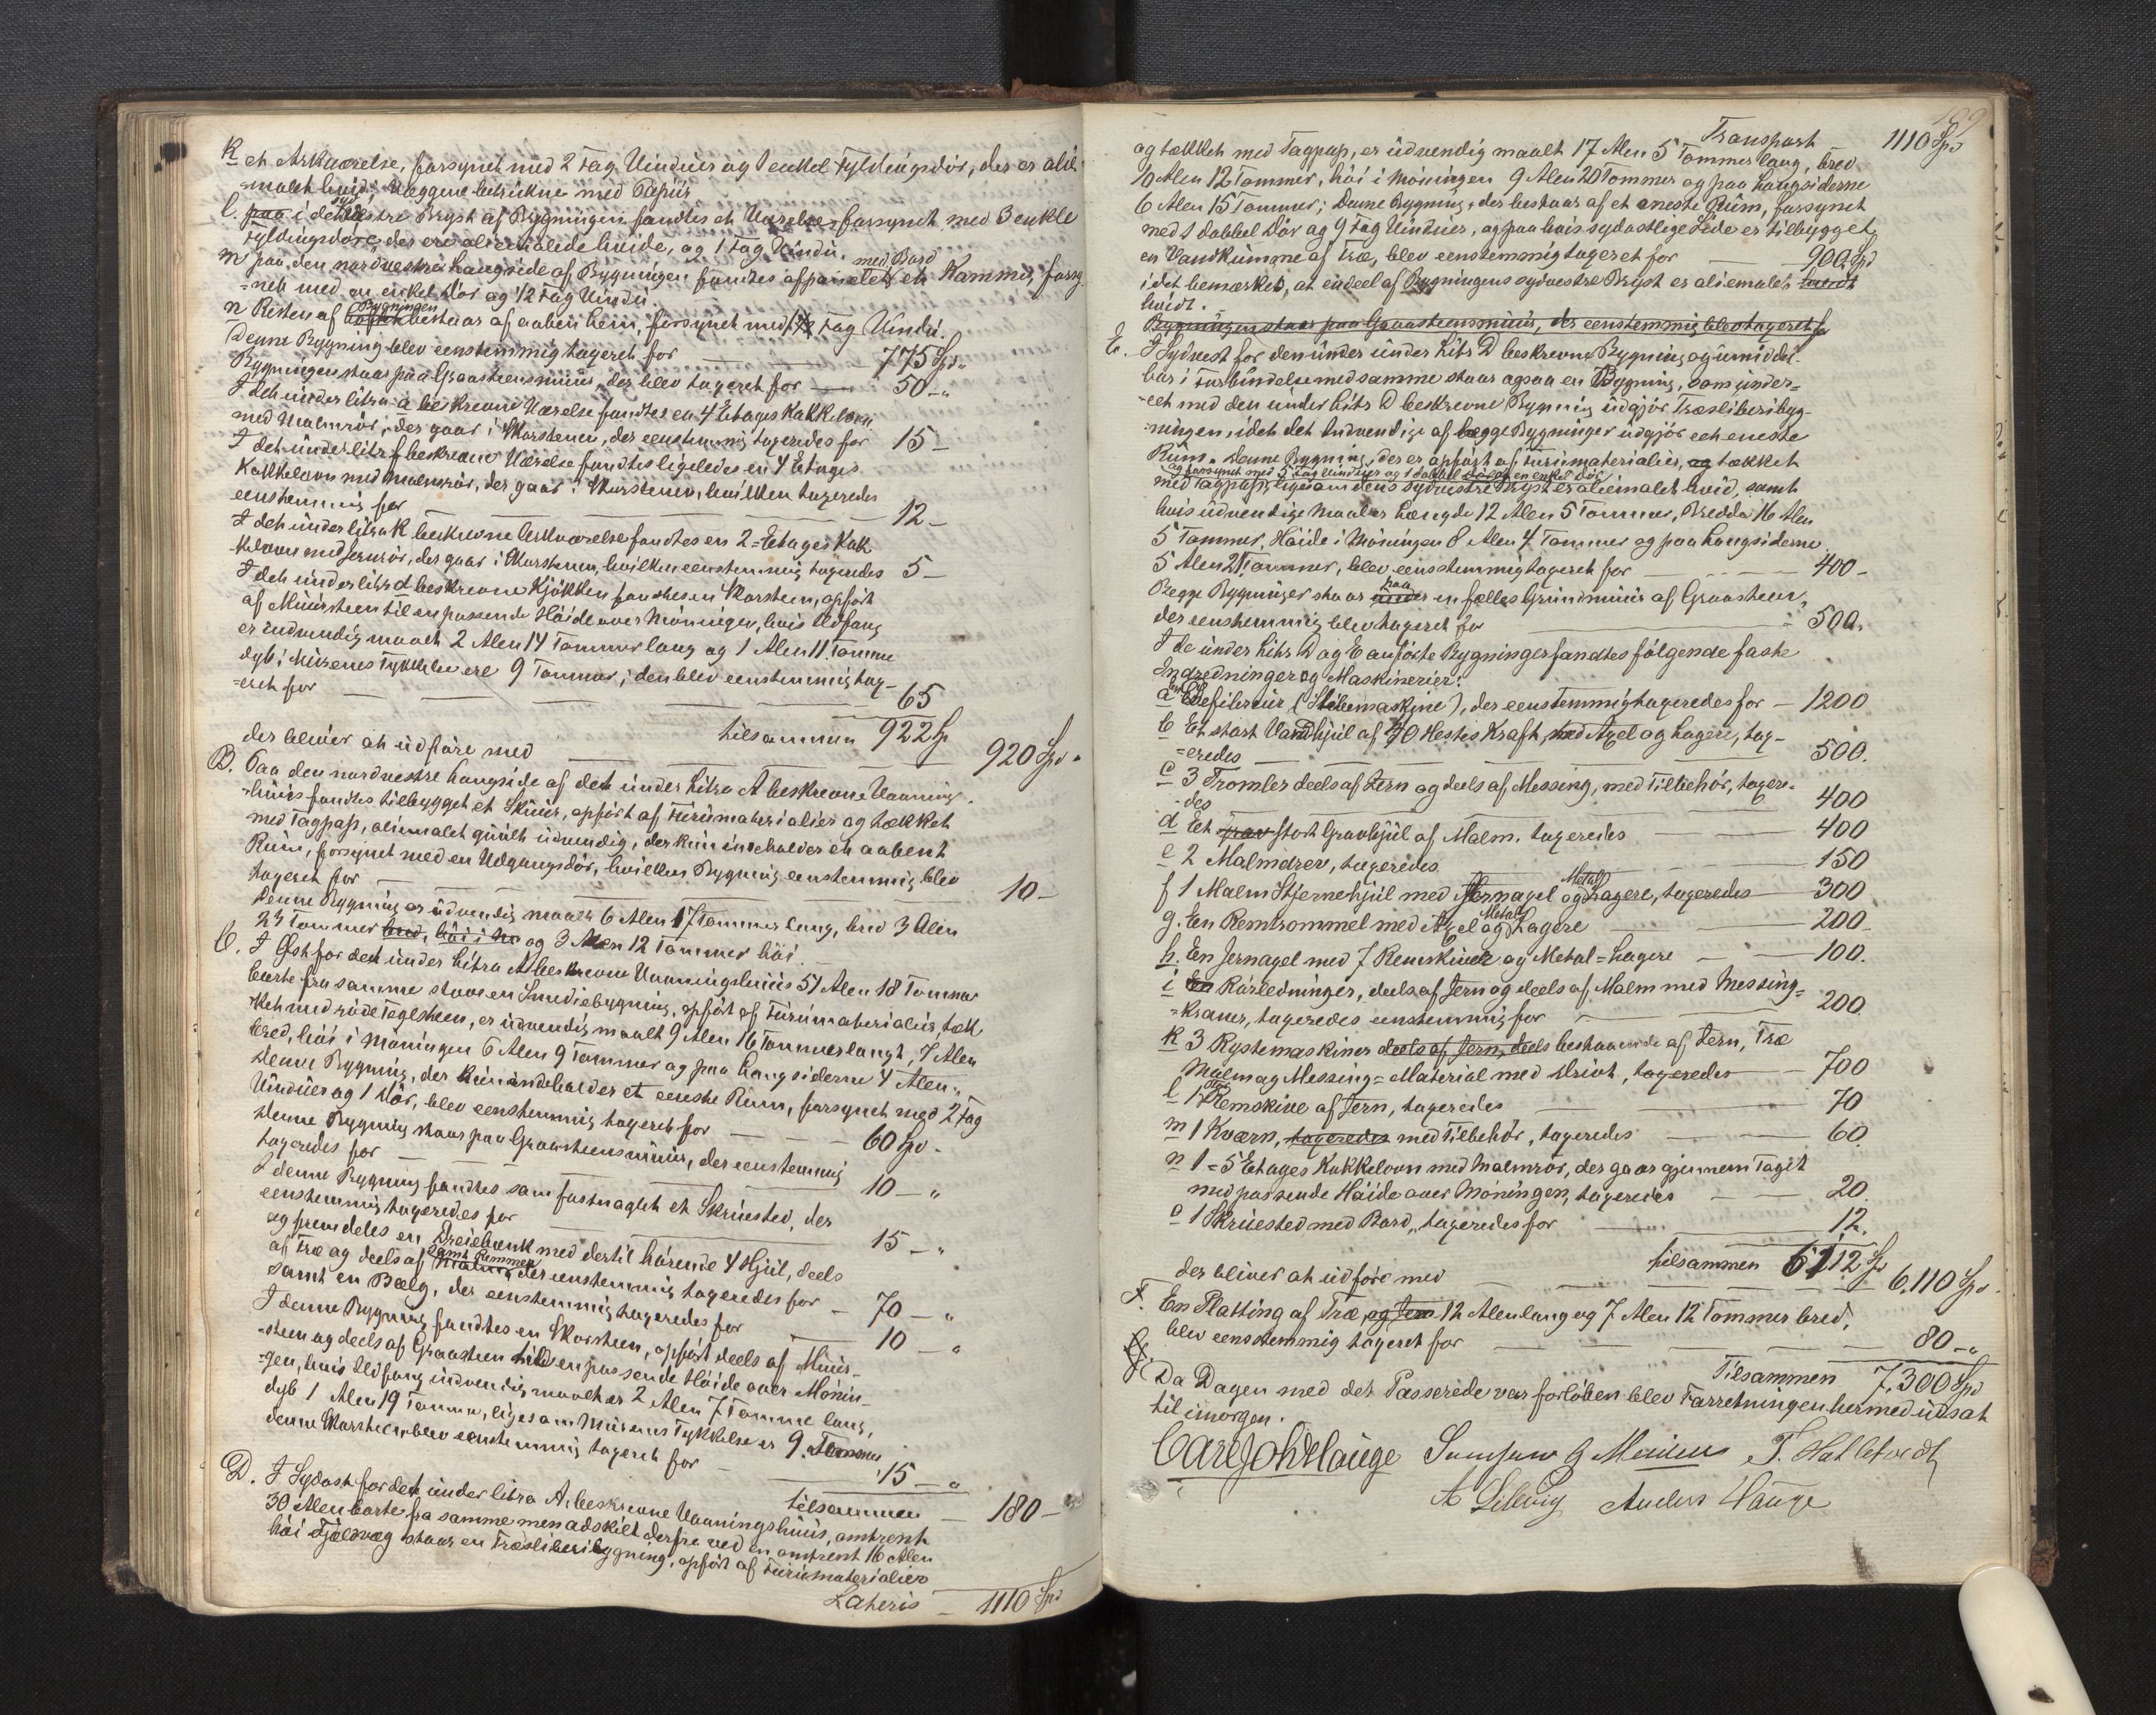 K et Arkværelse, forsynet med 2 Fag Vinduer og 1 enkel Fyldingsdør, der er olie-
malet hvid; Væggene betrukne med Papiir
l. paa i det sydvestre Bryst af Bygningen fandtes et Værelse forsynet med 3 enkle
Fyldingsdøre, der ere oliemalede hvide, og 1 Fag Vindu.
m paa den nordvestre Langside af Bygningen fandtes afpanelet med Bord et Kammer, forsy-
=net med en enkel Dør og 1/2 Fag Vindu.
n Resten af Loftet Bygningen bestaar af aaben Lem, forsynet med 1/2 Fag Vindu.
Denne Bygning blev eenstemmig taxeret for — 775 Spd "
Bygningen staar paa Graasteensmuur, der blev taxeret for — 50 - "
I det under litra a beskrevne Værelse fandtes en 4 Etages Kakkelovn
med Malmrør, der gaar i Skorstenen, der eenstemmig taxeredes for 15 -
I det under litr. f beskrevne Værelse fandtes ligeledes en 4 Etages
Kakkelovn med Malmrør, der gaar i Skorstenen, hvilken taxeredes
eenstemmig for — 12 -
I det under litra K beskrevne Arkværelse fandtes en 2=Etages Kak
kelovn med Jernrør, der gaar i Skorstenen, hvilken eenstemmig taxeredes 5 -
I det under litr. d beskrevne Kjøkken fandtes en Skorsteen, opført
af Muursteen til en passende Høide over Møningen, hvis Ildfang
er indvendig maalt 2 Alen 14 Tommer lang og 1 Alen 11 Tomme
dyb; Murenes Tykkelse ere 9 Tommer; den blev eenstemmig tax-
=eret for — 65
tilsammen 922 Sp
der bliver at udføre med — 920 Spd "
B. Paa den nordvestre Langside af det under Litra A beskrevne Vaanings-
huus fandtes tilbygget et Skuur, opført af Furumaterialier og tækket
med Tagpap, oliemalet guult udvendig, der kun indeholder et aabent
Rum, forsynet med en Udgangsdør, hvilken Bygning eenstemmig blev
taxeret for — 10 -
Denne Bygning er udvendig maalt 6 Alen 17 Tommer lang, bred 3 Alen
23 Tommer bred, høi i M og 3 Alen 12 Tommer høi. —
C. I Øst for det under Litra A beskrevne Vaaningshuus 51 Alen 18 Tommer
borte fra samme staar en Smediebygning, opført af Furumaterialier, tæk
ket med røde Teglsteen, er udvendig maalt 9 Alen 16 Tommer langt, 7 Alen
bred, høi i Møningen 6 Alen 9 Tommer og paa Langsiderne 4 Alen.
Denne Bygning, der kun indeholder et eneste Rum, forsynet med 2 Fag
Vinduer og 1 Dør, blev eenstemmig taxeret for — 60 Spd -
Denne Bygning staar paa Graasteensmuur, der eenstemmig
taxeredes for — 10 - "
I denne Bygning fandtes som fastnaglet et Skruested, der
eenstemmig taxeredes for — 15 - "
og fremdeles en Dreiebænk med dertil hørende 4 Hjul, deels
af Træ og deels af Malm, samt Remmer der eenstemmig taxeredes for — 70 - "
samt en Bælg, der eenstemmig taxeredes for — 10 - "
I denne Bygning fandtes en Skorsteen, opført deels af Muur-
steen og deels af Graasteen til en passende Høide over Mønin-
gen, hvis Ildfang indvendig maalt er 2 Alen 7 Tomme lang,
dyb 1 Alen 19 Tomme, ligesom Murens Tykkelse er 9 Tommer
denne Skorsteen blev eenstemmig taxeret for — 15 - "
tilsammen — 180 -
D. I Sydost for det under litra A. beskrevne Vaaningshuus, omtrent
30 Alen borte fra samme men adskilt derfra ved en omtrent 16 Alen
høi Fjældvæg staar en Træsliberibygning, opført af Furumaterialier
Lateris — 1110 Spd
189
Transport 1110 Spd
og tækket med Tagpap, er udvendig maalt 17 Alen 5 Tommer lang, bred
10 Alen 12 Tommer, høi i Møningen 9 Alen 20 Tommer og paa Langsiderne
6 Alen 15 Tommer; Denne Bygning, der bestaar af et eneste Rum, forsynet
med 1 dobbel Dør og 9 Fag Vinduer, og paa hvis sydostlige Side er tilbygget
en Vandkumme af Træ, blev eenstemmig taxeret for — 900 Spd
idet bemærkes, at endeel af Bygningens sydvestre Bryst er oliemalet hvidt
hvidt.
Bygningen staar paa Graasteensmuur, der eenstemmig blev taxeret for
E. I Sydvest for den under under Litr D beskrevne Bygning og umiddel-
bar i Forbindelse med samme staar ogsaa en Bygning, som under=
=eet med den under Litr D beskrevne Bygning udgjør Træsliberibyg-
=ningen, idet det Indvendige af begge Bygninger udgjør eet eneste
Rum. Denne Bygning, der er opført af Furumaterialier, og tækket
og forsynet med 5 Fag Vinduer og 1 dobbelt Dør og en enkel Dør
med Tagpap, ligesom dens sydvestre Bryst er oliemalet hvid, samt
hvis udvendige Maal er Længde 12 Alen 5 Tommer, Bredde 16 Alen
5 Tommer, Høide i Møningen 8 Alen 4 Tommer og paa Langsiderne
5 Alen 21 Tommer, blev eenstemmig taxeret for — 400 -
Begge Bygninger staar under paa en fælles Grundmuur af Graasteen,
der eenstemmig blev taxeret for — 500.
I de under Litr D og E anførte Bygninger fandtes følgende faste
Indredninger og Maskinerier:
a En Defibreur (Slibemaskine), der eenstemmig taxeredes for — 1200
b Et stort Vandhjul af 40 Hestes Kraft, med Axel og Lagere, tax-
=eredes — 500.
c 3 Tromler deels af Jern og deels af Messing, med Tilbehør, taxere-
-des — 400
d Et grov stort Gravhjul af Malm, taxeredes — 400
e 2 Malmdrev, taxeredes — 150
f 1 Malm Stjernehjul med Jernaxel og Metal Lagere, taxeredes — 300
g. En Remtrommel med Axel og Metal Lagere — 200 -
h. En Jernaxel med 7 Remskiver og Metal=Lagere — 100.
i En Rørledninger, deels af Jern og deels af Malm med Messing=
=kraner, taxeredes eenstemmig for — 200
K 3 Rystemaskiner deels af Jern, deels bestaaende af Jern, Træ
Malm og Messing=Material med Drivt, taxeredes — 700
l 1 Remskive af Jern, taxeredes — 70
m 1 Kværn, taxeredes med Tilbehør, taxeredes — 60.
n 1=5 Etages Kakkelovn med Malmrør, der gaar gjennem Taget
med passende Høide over Møningen, taxeredes — 20.
o 1 Skruested med Bord, taxeredes for — 12.
tilsammen 6112 Sp
der bliver at udføre med — 6,110 Spd.
F. En Platting af Træ, og Jern 12 Alen lang og 7 Alen 12 Tommer bred,
blev eenstemmig taxeret for — 80 - "
Tilsammen 7,300 Spd
Da Dagen med det Passerede var forløben blev Forretningen hermed udsat
til imorgen.
Carl Joh Hauge T. Hatlestadt
A Anders Hauge